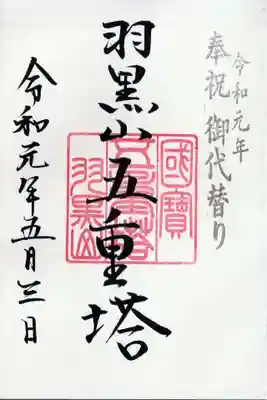 令和元年
奉祝 御代替り
羽黒山五重塔
國寶
五重塔
羽黒山
令和元年五月三日